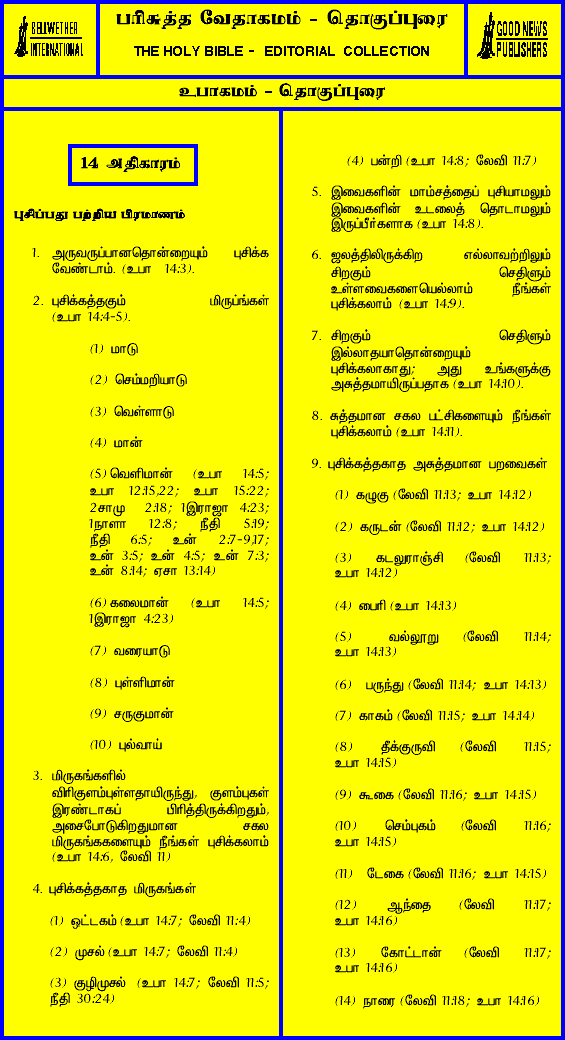 BELLWETHER
INTERNATIONAL
பரிசுத்த வேதாகமம் - தொகுப்புரை
THE HOLY BIBLE - EDITORIAL COLLECTION
GOOD NEWS
PUBLISHERS
உபாகமம் - தொகுப்புரை
14 அதிகாரம்
புசிப்பது பற்றிய பிரமாணம்
1. அருவருப்பானதொன்றையும் புசிக்க
வேண்டாம். (உபா 14:3).
2. புசிக்கத்தகும் மிருப்ங்கள்
(உபா 14:4-5).
(1) மாடு
(2) செம்மறியாடு
(3) வெள்ளாடு
(4) மான்
(5) வெளிமான் (உபா 14:5;
உபா 12:15,22; உபா 15:22;
2சாமு 2:18; 1இராஜா 4:23;
1நாளா 12:8; நீதி 5:19;
நீதி 6:5; உன் 2:7-9,17;
உன் 3:5; உன் 4:5; உன் 7:3;
உன் 8:14; ஏசா 13:14)
(6) கலைமான் (உபா 14:5;
1இராஜா 4:23)
(7) வரையாடு
(8) புள்ளிமான்
(9) சருகுமான்
(10) புல்வாய்
3. மிருகங்களில்
விரிகுளம்புள்ளதாயிருந்து, குளம்புகள்
இரண்டாகப் பிரித்திருக்கிறதும்,
அசைபோடுகிறதுமான சகல
மிருகங்ககளையும் நீங்கள் புசிக்கலாம்
(உபா 14:6, லேவி 11)
4. புசிக்கத்தகாத மிருகங்கள்
(1) ஒட்டகம் (உபா 14:7; லேவி 11:4)
(2) முசல் (உபா 14:7; லேவி 11:4)
(3) குழிமுசல் (உபா 14:7; லேவி 11:5;
நீதி 30:24)
(4) பன்றி (உபா 14:8; லேவி 11:7)
5. இவைகளின் மாம்சத்தைப் புசியாமலும்
இவைகளின் உடலைத் தொடாமலும்
இருப்பீர்களாக (உபா 14:8).
6. ஜலத்திலிருக்கிற எல்லாவற்றிலும்
சிறகும் செதிளும்
உள்ளவைகளையெல்லாம் நீங்கள்
புசிக்கலாம் (உபா 14:9).
7. சிறகும் செதிளும்
இல்லாதயாதொன்றையும்
புசிக்கலாகாது; அது உங்களுக்கு
அசுத்தமாயிருப்பதாக (உபா 14:10).
8. சுத்தமான சகல பட்சிகளையும் நீங்கள்
புசிக்கலாம் (உபா 14:11).
9. புசிக்கத்தகாத அசுத்தமான பறவைகள்
(1) கழுகு (லேவி 11:13; உபா 14:12)
(2) கருடன் (லேவி 11:12; உபா 14:12)
(3) கடலுராஞ்சி (லேவி 11:13;
உபா 14:12)
(4) பைரி (உபா 14:13)
(5) வல்லூறு (லேவி 11:14;
உபா 14:13)
(6) பருந்து (லேவி 11:14; உபா 14:13)
(7) காகம் (லேவி 11:15; உபா 14:14)
(8) தீக்குருவி (லேவி 11:15;
உபா 14:15)
(9) கூகை (லேவி 11:16; உபா 14:15)
(10) செம்புகம் (லேவி 11:16;
உபா 14:15)
(11) டேகை (லேவி 11:16; உபா 14:15)
(12) ஆந்தை (லேவி 11:17;
உபா 14:16)
(13) கோட்டான் (லேவி 11:17;
உபா 14:16)
(14) நாரை (லேவி 11:18; உபா 14:16)